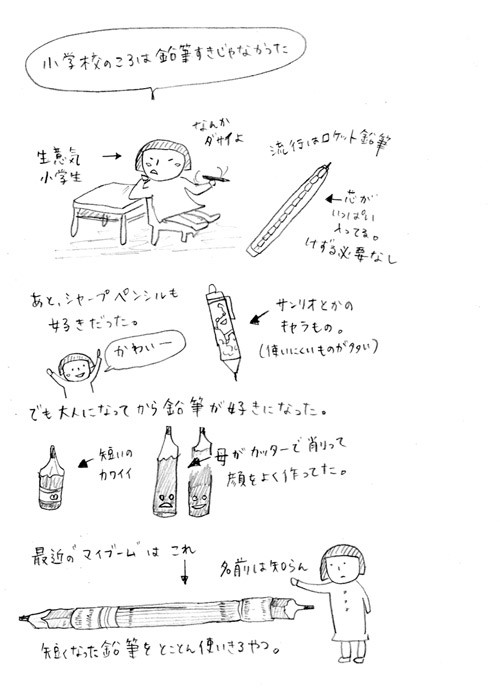 小学校のころは鉛筆すきじゃなかった
なんか
ダサイよ
生意気
小学生
流行はロケット鉛筆
芯が
いっぱい
入ってる。
けずる必要なし
あと、シャープペンシルも
好きだった。
かわいー
サンリオとかの
キャラもの。
(使いにくいものが多い)
でも大人になってから鉛筆が好きになった。
短いの
カワイイ
母がカッターで削って
顔をよく作ってた。
最近の"マイブーム"は これ
名前は知らん
短くなった鉛筆をとことん使いきるやつ。